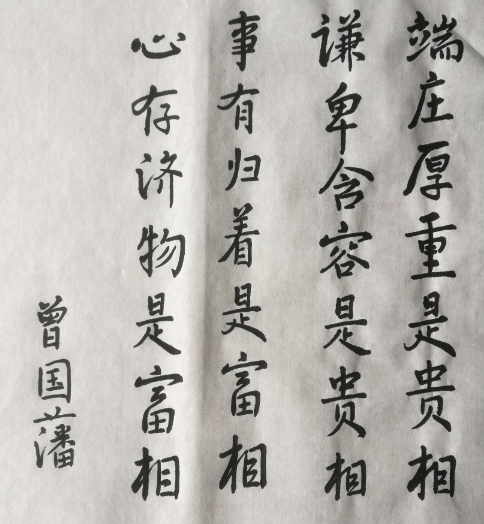 端庄厚重是贵相
谦卑含容是贵相
事有归着是富相
心存济物是富相
曾国藩